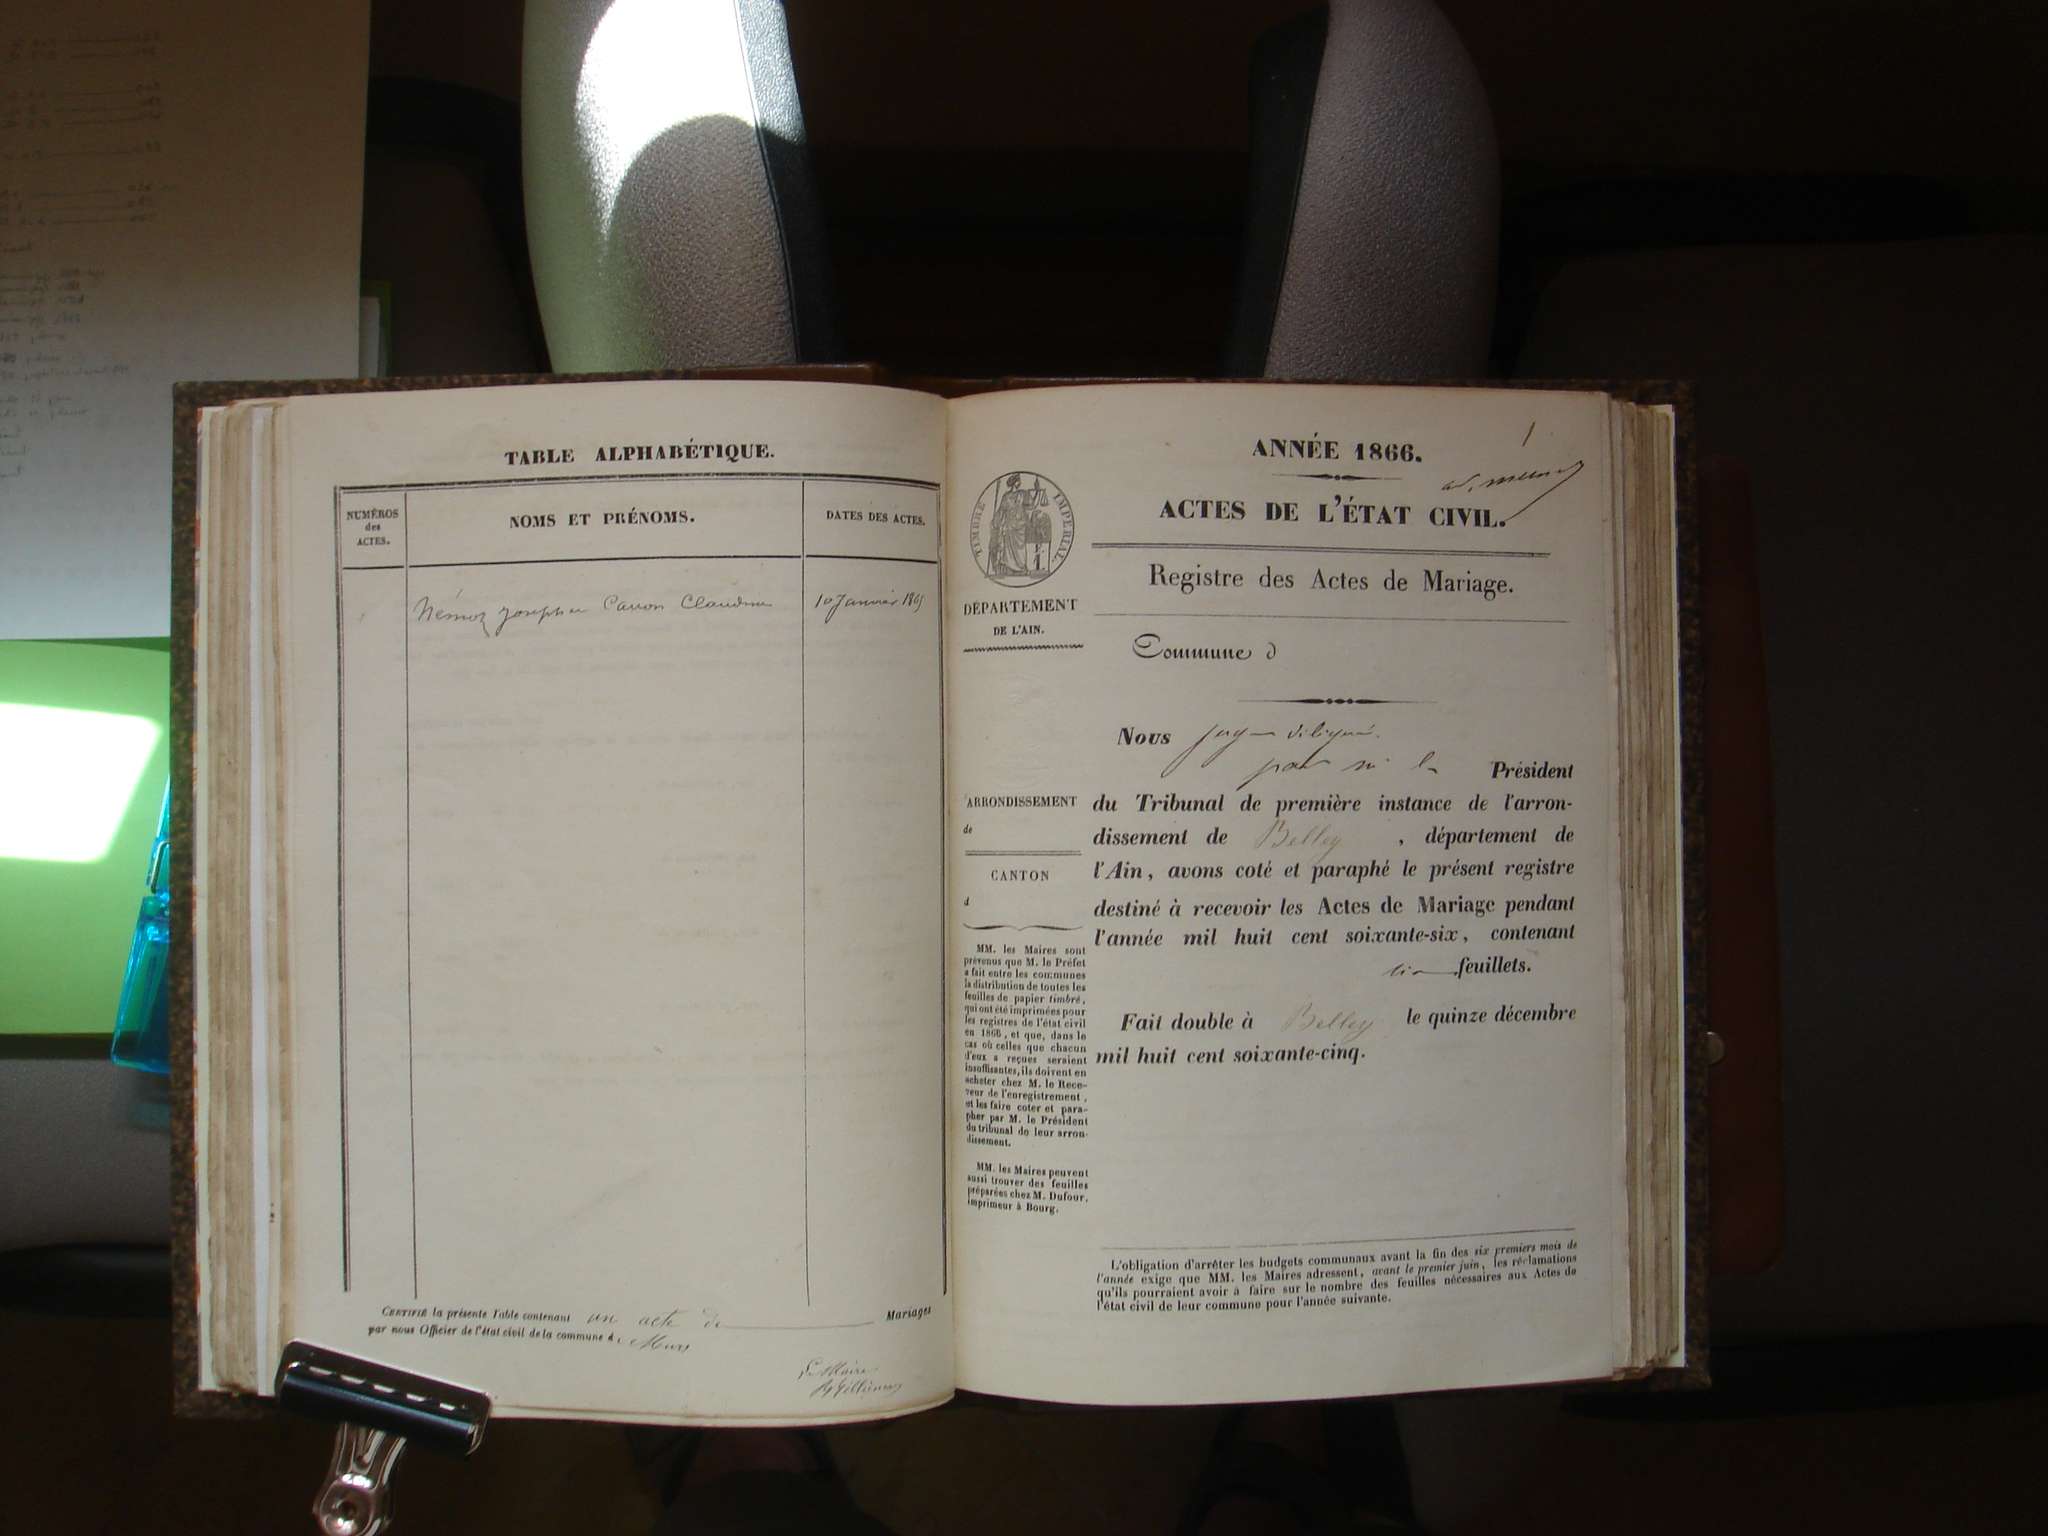 TABLE ALPHABÉTIQUE.
NUMÉROS
des
ACTES.
NOMS ET PRÉNOMS.
DATES DES ACTES.
Némoz Joseph et Carron Claudine
10 Janvier 1865
CERTIFIÉ la présente Table contenant un acte de Mariages
par nous Officier de l'état civil de la commune de Murs
Le Maire
ANNÉE 1866.
1
ACTES DE L'ÉTAT CIVIL.
TIMBRE IMPÉRIAL
Registre des Actes de Mariage.
DÉPARTEMENT
DE L'AIN.
Commune d
Nous juge délégué
pour le Président
ARRONDISSEMENT
de
CANTON
d
du Tribunal de première instance de l'arron-
dissement de Belley, département de
l'Ain, avons coté et paraphé le présent registre
destiné à recevoir les Actes de Mariage pendant
l'année mil huit cent soixante-six, contenant
feuillets.
Fait double à Belley le quinze décembre
mil huit cent soixante-cinq.
MM. les Maires sont
prévenus que M. le Préfet
a fait entre les communes
la distribution de toutes les
feuilles de papier timbré,
qui ont été imprimées pour
les registres de l'état civil
en 1866, et que, dans le
cas où celles que chacun
d'eux a reçues seraient
insuffisantes, ils doivent en
acheter chez M. le Rece-
veur de l'enregistrement,
et les faire coter et para-
pher par M. le Président
du tribunal de leur arron-
dissement.
MM. les Maires peuvent
aussi trouver des feuilles
préparées chez M. Dufour,
imprimeur à Bourg.
L'obligation d'arrêter les budgets communaux avant la fin des six premiers mois de
l'année exige que MM. les Maires adressent, avant le premier juin, les réclamations
qu'ils pourraient avoir à faire sur le nombre des feuilles nécessaires aux Actes de
l'état civil de leur commune pour l'année suivante.